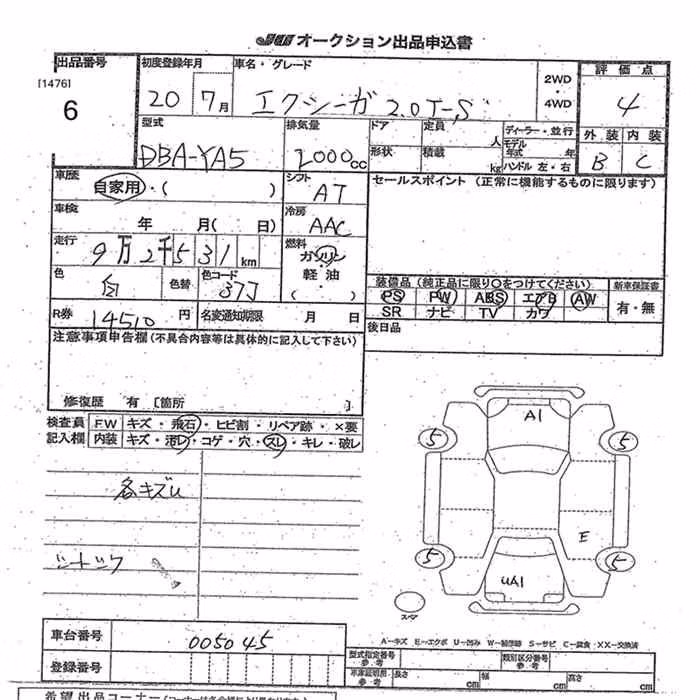 JU オークション出品申込書
出品番号 初度登録年月 車名・グレード 2WD・4WD 評価点
[1476]
6 20 7月 エクシーガ 2.0i-S 4
型式 排気量 ドア 定員 人 ディーラー・並行 外装 内装
DBA-YA5 2000cc 形状 積載 kg モデル年式 年 B C
ハンドル 左・右
車歴 自家用・( ) シフト AT セールスポイント (正常に機能するものに限ります)
車検 年 月( 日) 冷房 AAC
走行 9万2千531km 燃料 ガソリン・軽油 ( )
色 白 色替 色コード 37J
装備品 (純正品に限り○をつけてください) 新車保証書
PS PW ABS エアB AW 有・無
SR ナビ TV カワ
R券 14510円 名変通知期限 月 日 後日品
注意事項申告欄(不具合内容等は具体的に記入して下さい)
修復歴 有 [箇所 ]
検査員 FW キズ・飛石・ヒビ割・リペア跡・×要
記入欄 内装 キズ・汚レ・コゲ・穴・スレ・キレ・破レ
A1
5 5
各キズU
E
シートスク
5 5
UA1
スペア
A-キズ E-エクボ U-凹み W-補修跡 S-サビ C-腐食・XX-交換済
車台番号 005045
型式指定番号 参考 類別区分番号 参考
登録番号 車庫証明用 参考 長さ cm 幅 cm 高さ cm
希望出品コーナー